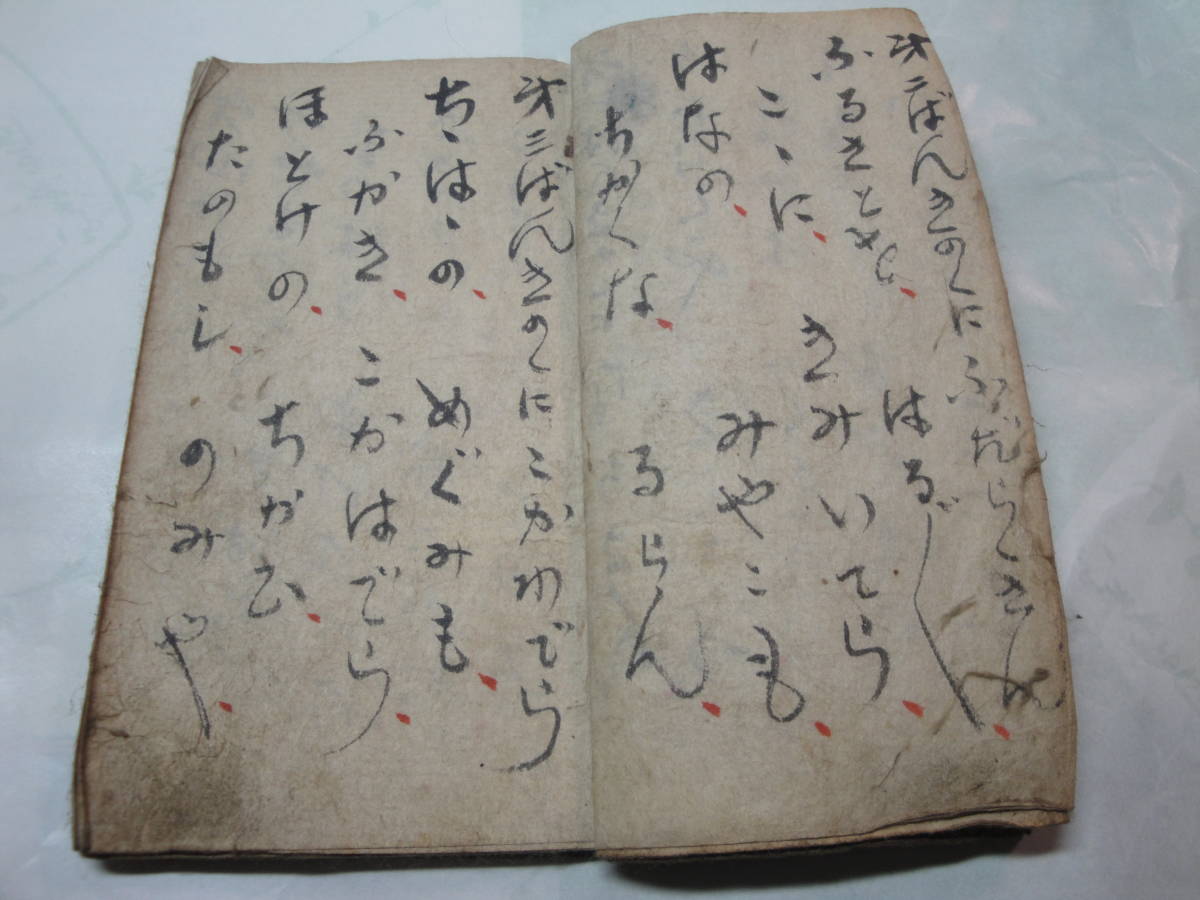 第二ばんきのくにふだらくさん
ふるさとを はる〴〵
こゝに きみいてら
はなの みやこも
ちかくな るらん
第三ばんきのくにこかわでら
ちゝはゝの めぐみも
ふかき こかはでら
ほとけの ちかひ
たのもし のみや